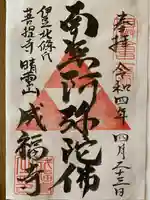 奉拝 令和四年四月二十三日
南無阿弥陀佛
伊豆北條氏
菩提寺 晴雲山
成福寺